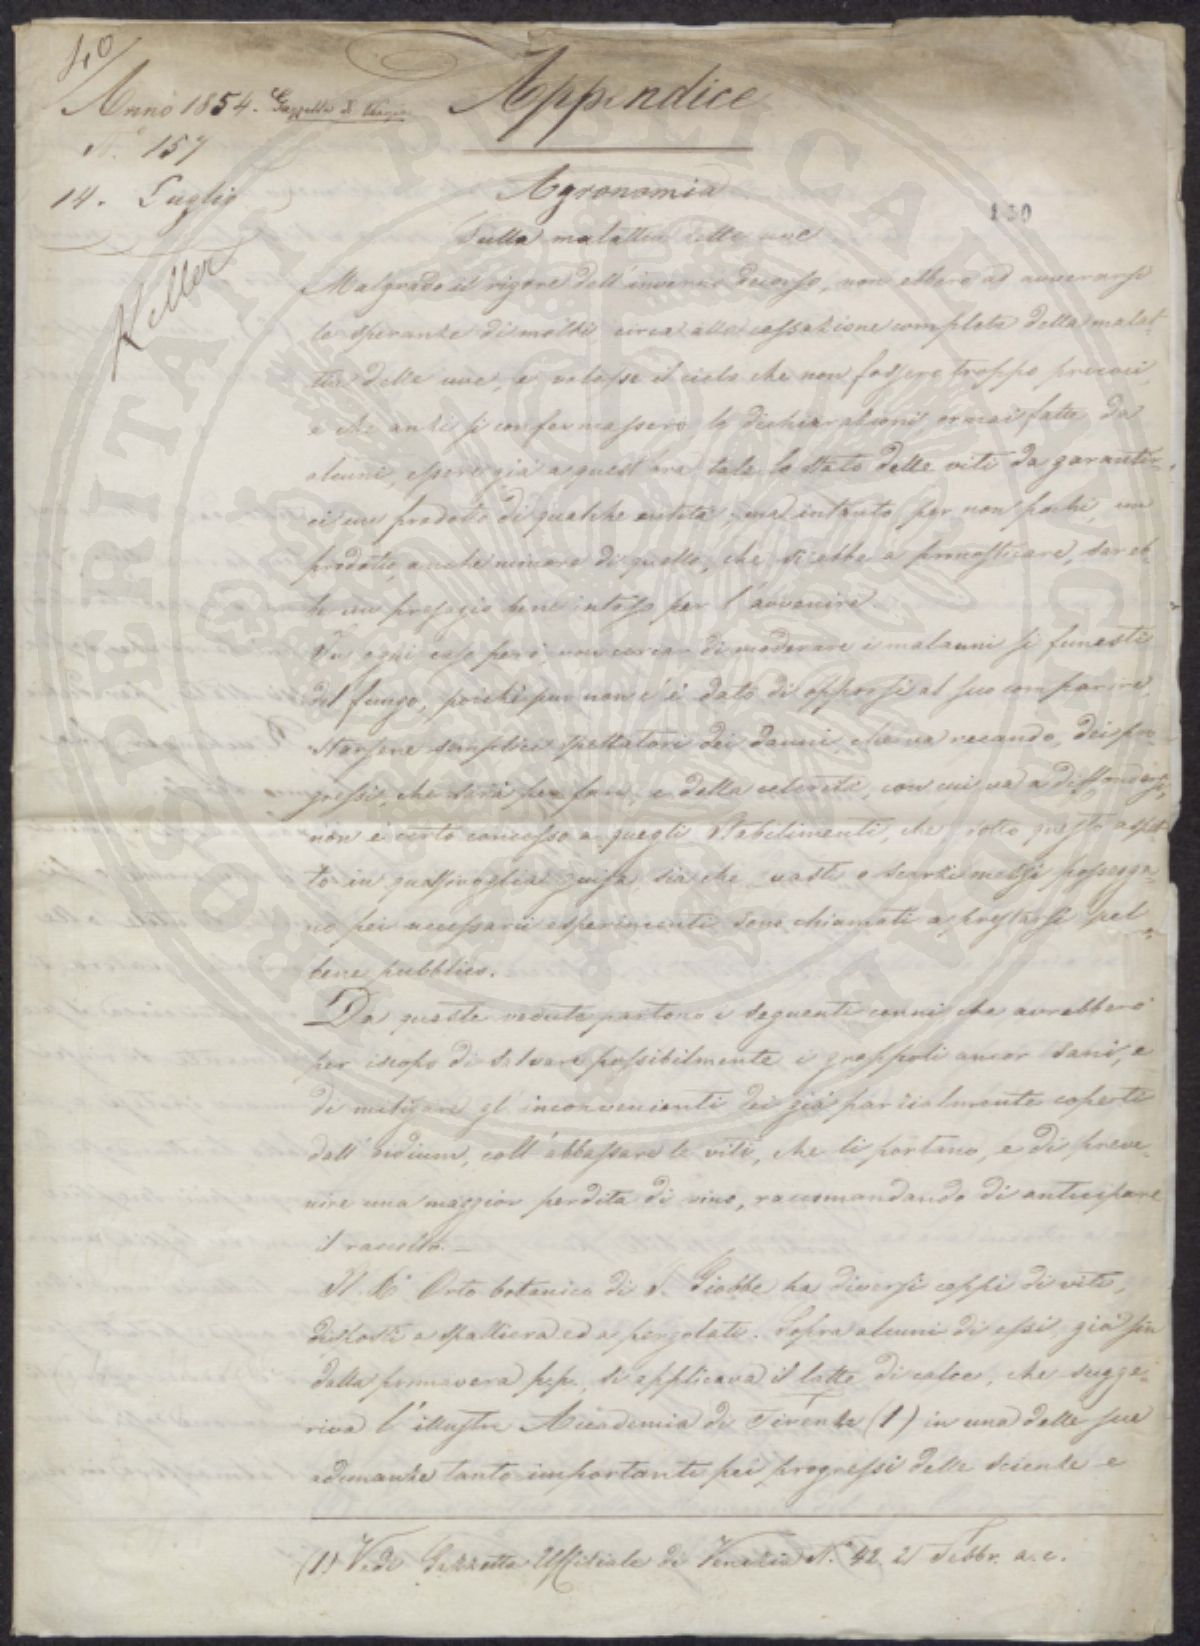 40
Anno 1854. Gazzetta di Venezia
N.° 157
14. Luglio
Keller
Appendice
Agronomia
130
Sulla malattia delle uve
Malgrado il rigore dell'inverno decorso, non ebbero ad avverarsi
le speranze di molti circa alla cessazione completa della malat-
tia delle uve, e volesse il cielo che non fossero troppo precoci,
e che anzi si confermassero le dichiarazioni ormai fatte da
alcuni, essere già a quest'ora tale lo stato delle viti da garantir-
ci un prodotto di qualche entità; ma intanto per non pochi, un
prodotto, anche minore di quello, che si ebbe a pronosticare, sareb-
be un presagio bene inteso per l'avvenire.
In ogni caso però, non cercar di moderare i malanni sì funesti
del fungo, poiché pur non c'è dato di opporsi al suo comparire,
starsene semplici spettatori dei danni che va recando, dei pro-
gressi, che sarà per fare, e della celerità, con cui va a diffondersi,
non è certo concesso a quegli Stabilimenti, che sotto questo aspet-
to in qualsivoglia guisa, sia che vasti o scarsi mezzi possegga-
no pei necessarii esperimenti sono chiamati a prestarsi pel
bene pubblico.
Da queste vedute partono i seguenti cenni che avrebbero
per iscopo di salvare possibilmente i grappoli ancor sani, e
di mitigare gl'inconvenienti dei già parzialmente coperti
dall'oidium, coll'abbassare le viti, che li portano, e di preve-
nire una maggior perdita di vino, raccomandando di anticipare
il raccolto. —
L'I. R. Orto botanico di S. Giobbe ha diversi ceppi di viti,
disposti a spalliera ed a pergolati. Sopra alcuni di essi, già sin
dalla primavera p.p. si applicava il latte di calce, che sugge-
riva l'illustre Accademia di Firenze (1) in una delle sue
adunanze tanto importanti pei progressi delle scienze e
(1) Vedi Gazzetta Uffiziale di Venezia N.° 42. 21 Febbr. a. c.